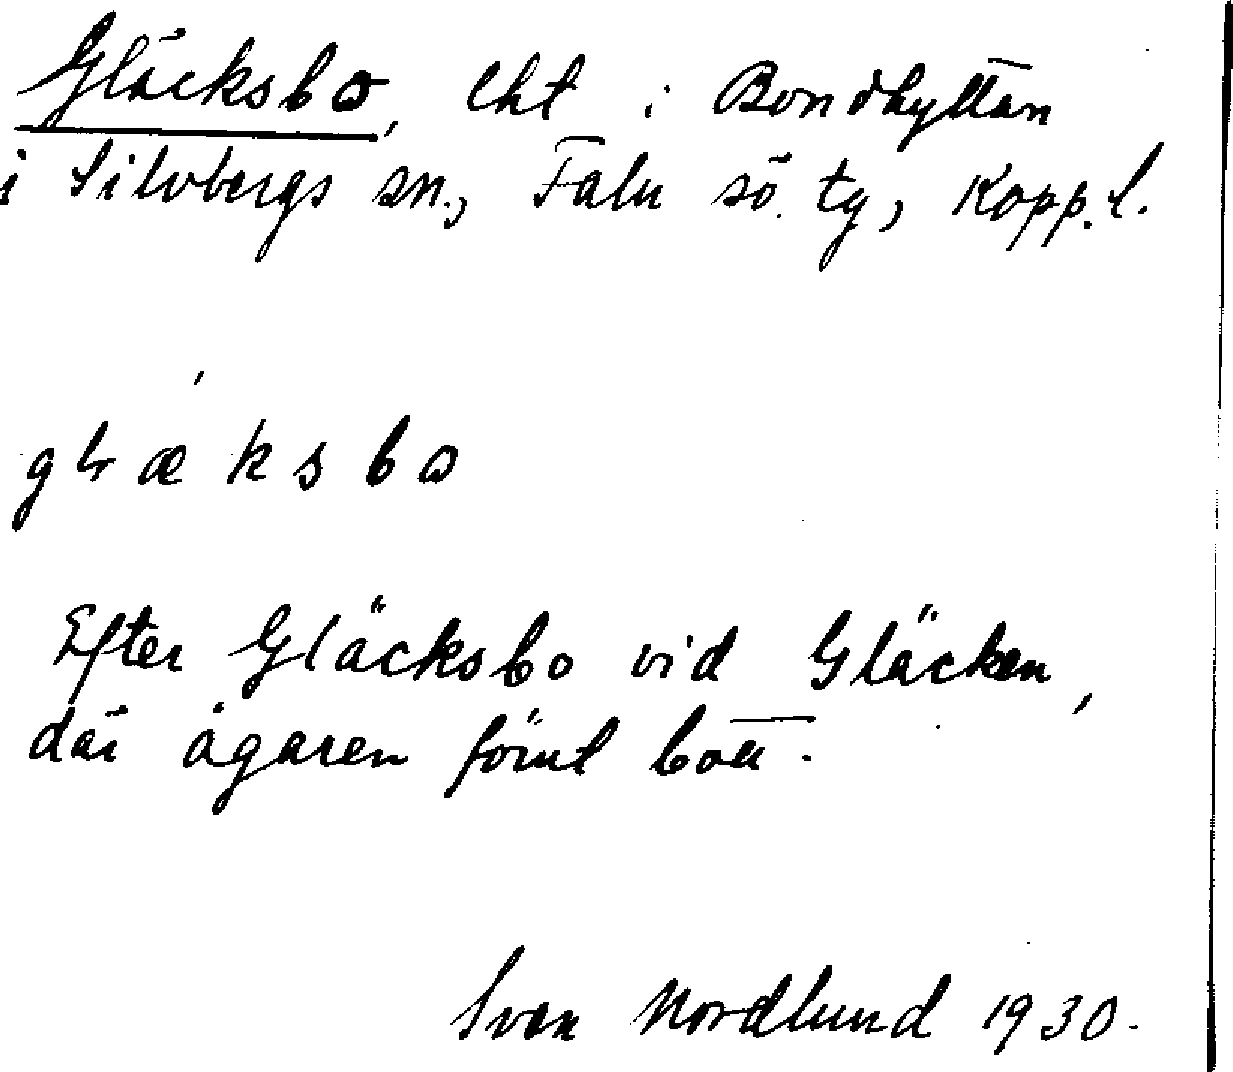 Gläcksbo, lht i Bondhyttan
i Silvbergs sn., Falu sö. tg, Kopp. l.
glæksbo
Efter Gläcksbo vid Gläcken,
där ägaren förut bott.
Sven Nordlund 1930.